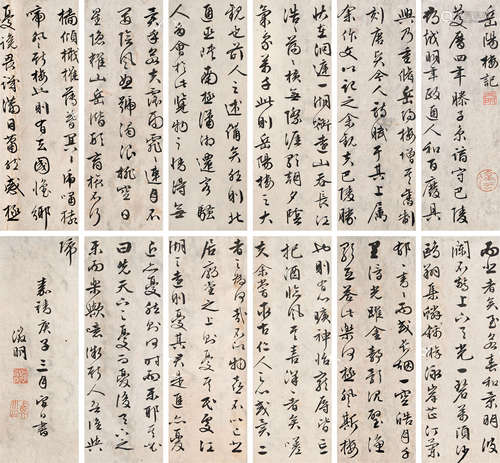 岳陽樓記
慶曆四年滕子京謫守巴陵
郡越明年政通人和百廢具
興乃重脩岳陽樓增其舊制
刻唐賢今人詩賦于其上屬
余作文以記之余觀夫巴陵勝
狀在洞庭一湖銜遠山吞長江
浩浩蕩蕩橫無際涯朝暉夕陰
氣象萬千此則岳陽樓之大
觀也前人之述備矣然則北
通巫峽南極瀟湘遷客騷
人多會於此覽物之情得無
異乎若夫霪雨霏霏連月不
開陰風怒號濁浪排空日
星隱耀山岳潛形商旅不行
檣傾楫摧薄暮冥冥虎嘯猿
啼登斯樓也則有去國懷鄉
憂讒畏譏滿目蕭然感極
而悲者矣至若春和景明波
瀾不驚上下天光一碧萬頃沙
鷗翔集錦鱗游泳岸芷汀蘭
郁郁青青而或長烟一空皓月千
里浮光躍金靜影沉璧漁
歌互答此樂何極登斯樓
也則有心曠神怡寵辱皆忘
把酒臨風其喜洋洋者矣嗟
夫余嘗求古仁人之心或異二
者之為何哉不以物喜不以己悲
居廟堂之上則憂其民處江
湖之遠則憂其君是進亦憂
退亦憂然則何時而樂耶其必
曰先天下之憂而憂後天下之
樂而樂歟噫微斯人吾誰與
歸
嘉靖庚子三月望日書
徵明